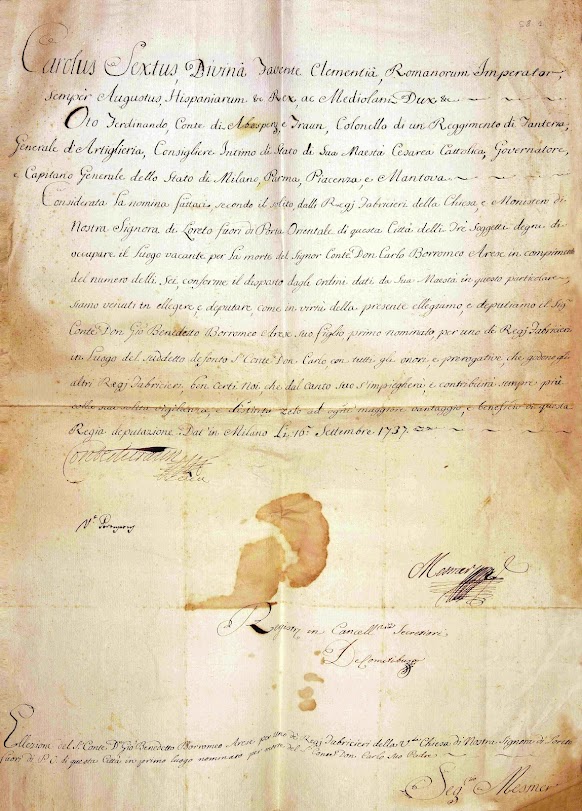 Carolus Sextus, Divinâ Favente Clementiâ, Romanorum Imperator,
sempèr Augustus, Hispaniarum &c Rex ac Mediolani Dux &c
Oto Ferdinando, Conte di Abensperg, e Traun, Colonello di un Reggimento di Fanteria,
Generale d'Artiglieria, Consigliere Intimo di Stato di Sua Maestà Cesarea Cattolica, Governatore,
e Capitano Generale dello Stato di Milano, Parma, Piacenza, e Mantova
Considerata la nomina fattaci, secondo il solito dalli Regj Fabricieri della Chiesa, e Monistero di
Nostra Signora di Loreto fuori di Porta Orientale di questa Città delli Tre Soggetti degni di
occupare il luogo vacante per la morte del Signor Conte Don Carlo Borromeo Arese in compimento
del numero delli Sei, conforme il disposto dagli ordini dati da Sua Maestà in questo particolare
siamo venuti in eleggere, e deputare come in virtù della presente elleggiamo, e deputiamo il Sig.r
Conte Don Giò Benedetto Borromeo Arese suo figlio primo nominato per uno de Regj Fabricieri
in Luogo del Suddetto defonto S.r Conte Don Carlo con tutti gli onori, e prerogative, che godono gli
altri Regj Fabricieri, ben certi Noi, che dal canto suo s'impiegherà, e contribuirà sempre più
colla sua solita vigilanza, e distinto zelo ad ogni maggiore vantaggio, e beneficio di questa
Regia deputazione. Dat' in Milano Li 10 Settembre 1737.
Mesmer
Registr. in Cancell. Secretiori
Ellezione del S.r Conte D.n Giò Benedetto Borromeo Arese per uno de Regj Fabricieri della V.da Chiesa di Nostra Signora di Loreto
fuori di P. O. di questa Città in primo luogo nominato per morte del S.r Conte Don Carlo suo Padre
Seg.rio Mesmer